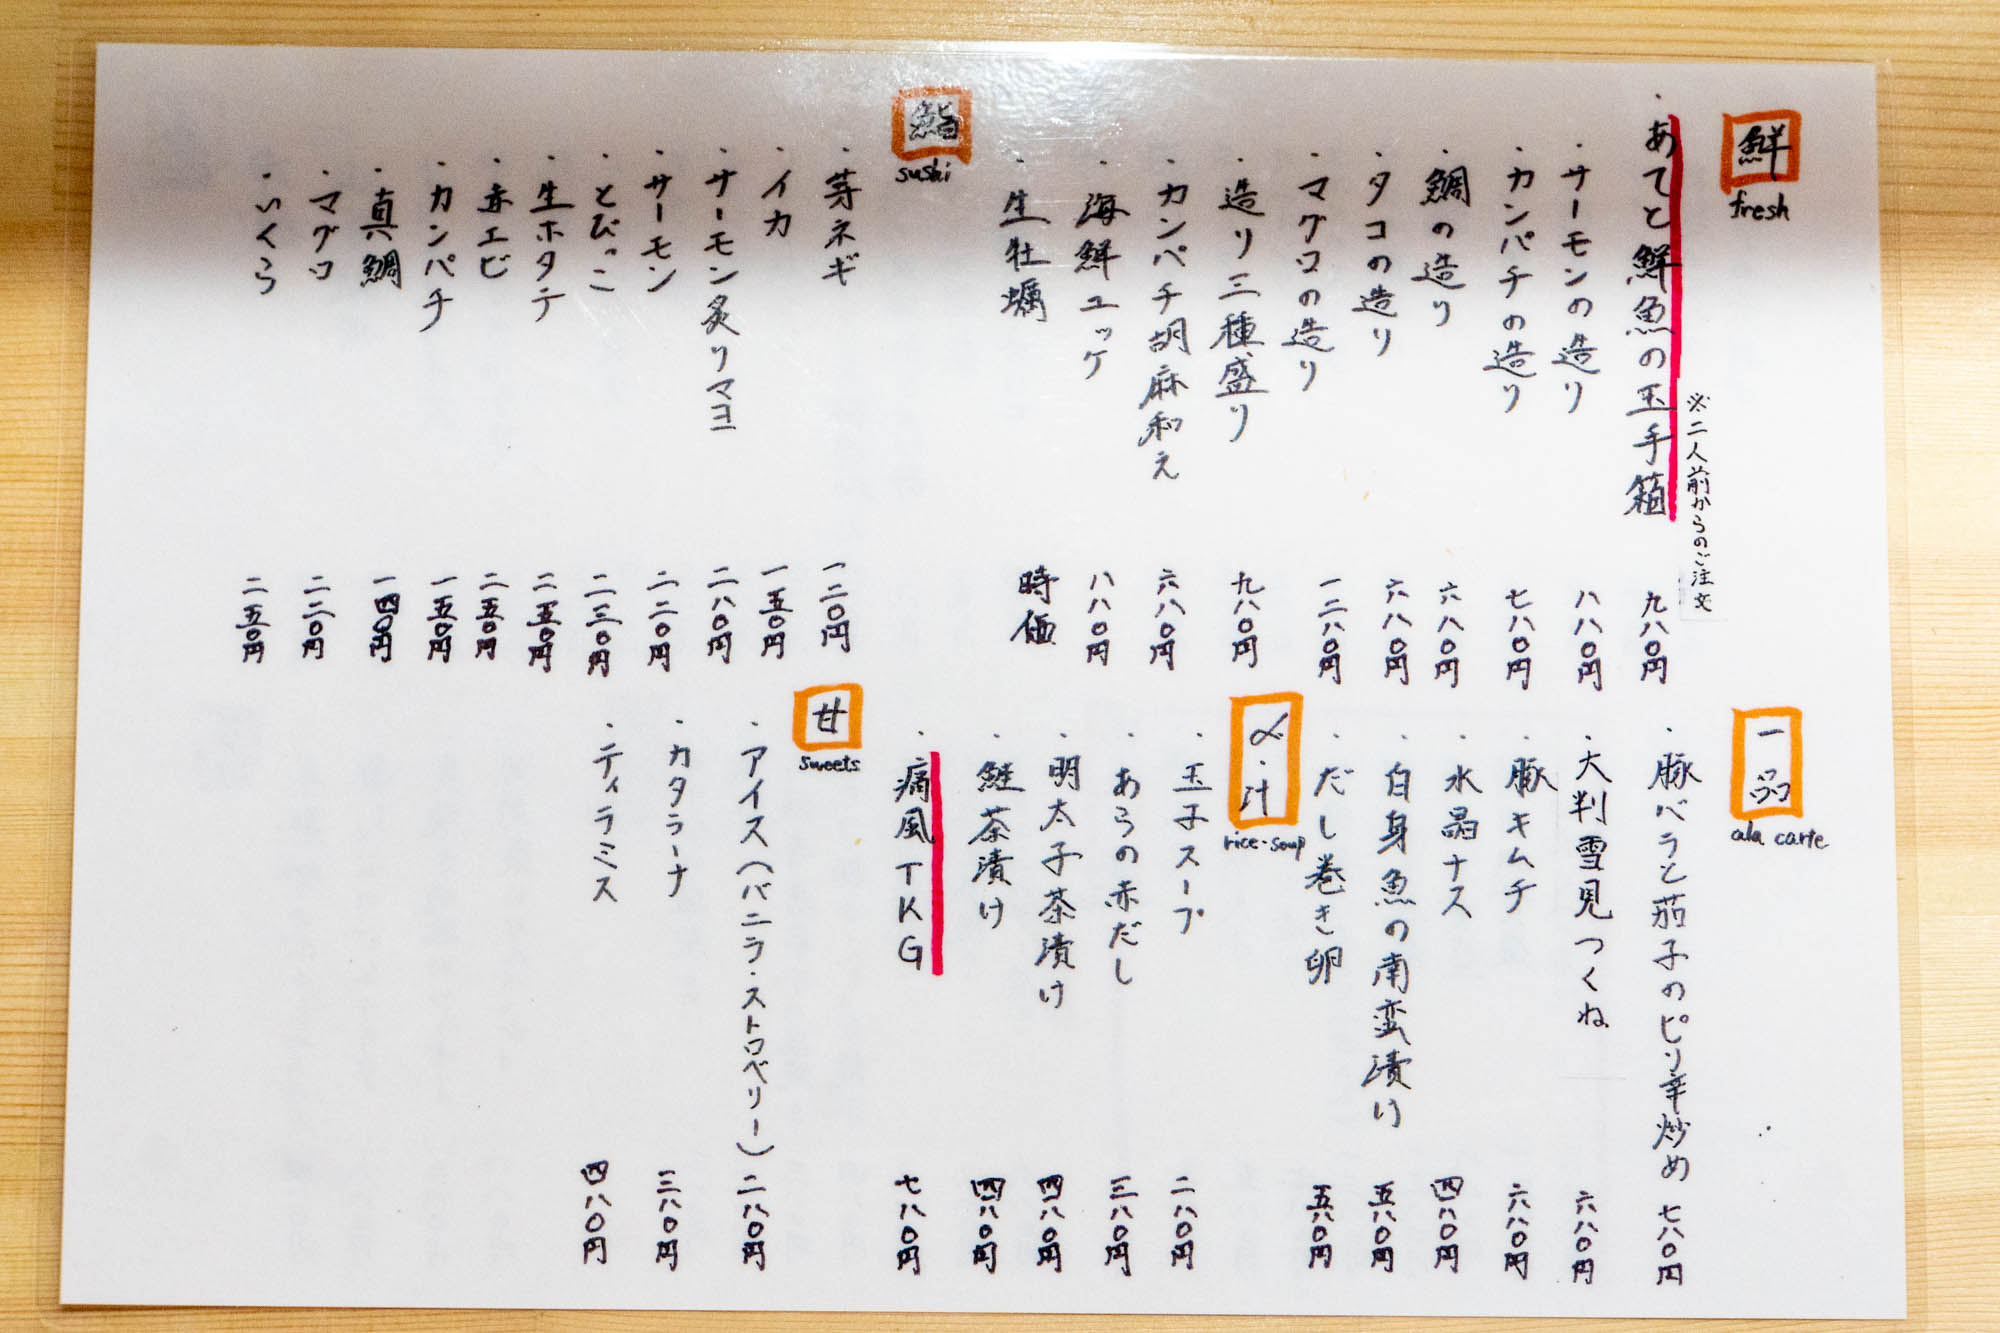 鮮
fresh
・あてと鮮魚の玉手箱 九八〇円
※二人前からのご注文
・サーモンの造り 八八〇円
・カンパチの造り 七八〇円
・鯛の造り 六八〇円
・タコの造り 六八〇円
・マグロの造り 一二八〇円
・造り三種盛り 九八〇円
・カンパチ胡麻和え 六八〇円
・海鮮ユッケ 八八〇円
・生牡蠣 時価
鮨
sushi
・芽ネギ 一二〇円
・イカ 一五〇円
・サーモン炙りマヨ 二八〇円
・サーモン 二二〇円
・とびっこ 二三〇円
・生ホタテ 二五〇円
・赤エビ 二五〇円
・カンパチ 一五〇円
・真鯛 一四〇円
・マグロ 二二〇円
・いくら 二五〇円
一品
ala carte
・豚バラと茄子のピリ辛炒め 七八〇円
・大判雪見つくね 六八〇円
・豚キムチ 六八〇円
・水晶ナス 四八〇円
・白身魚の南蛮漬け 五八〇円
・だし巻き卵 五八〇円
〆・汁
rice・soup
・玉子スープ 二八〇円
・あらの赤だし 三八〇円
・明太子茶漬け 四八〇円
・鮭茶漬け 四八〇円
・痛風TKG 七八〇円
甘
sweets
・アイス(バニラ・ストロベリー) 二八〇円
・カタラーナ 三八〇円
・ティラミス 四八〇円